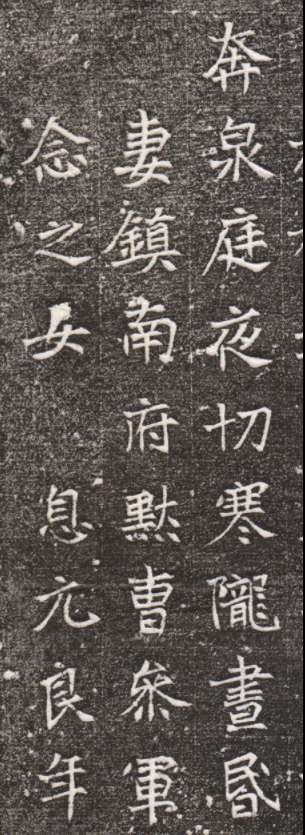 奔泉庭夜切寒隴晝昏
妻鎮南府默曺叅軍
念之女息元良年